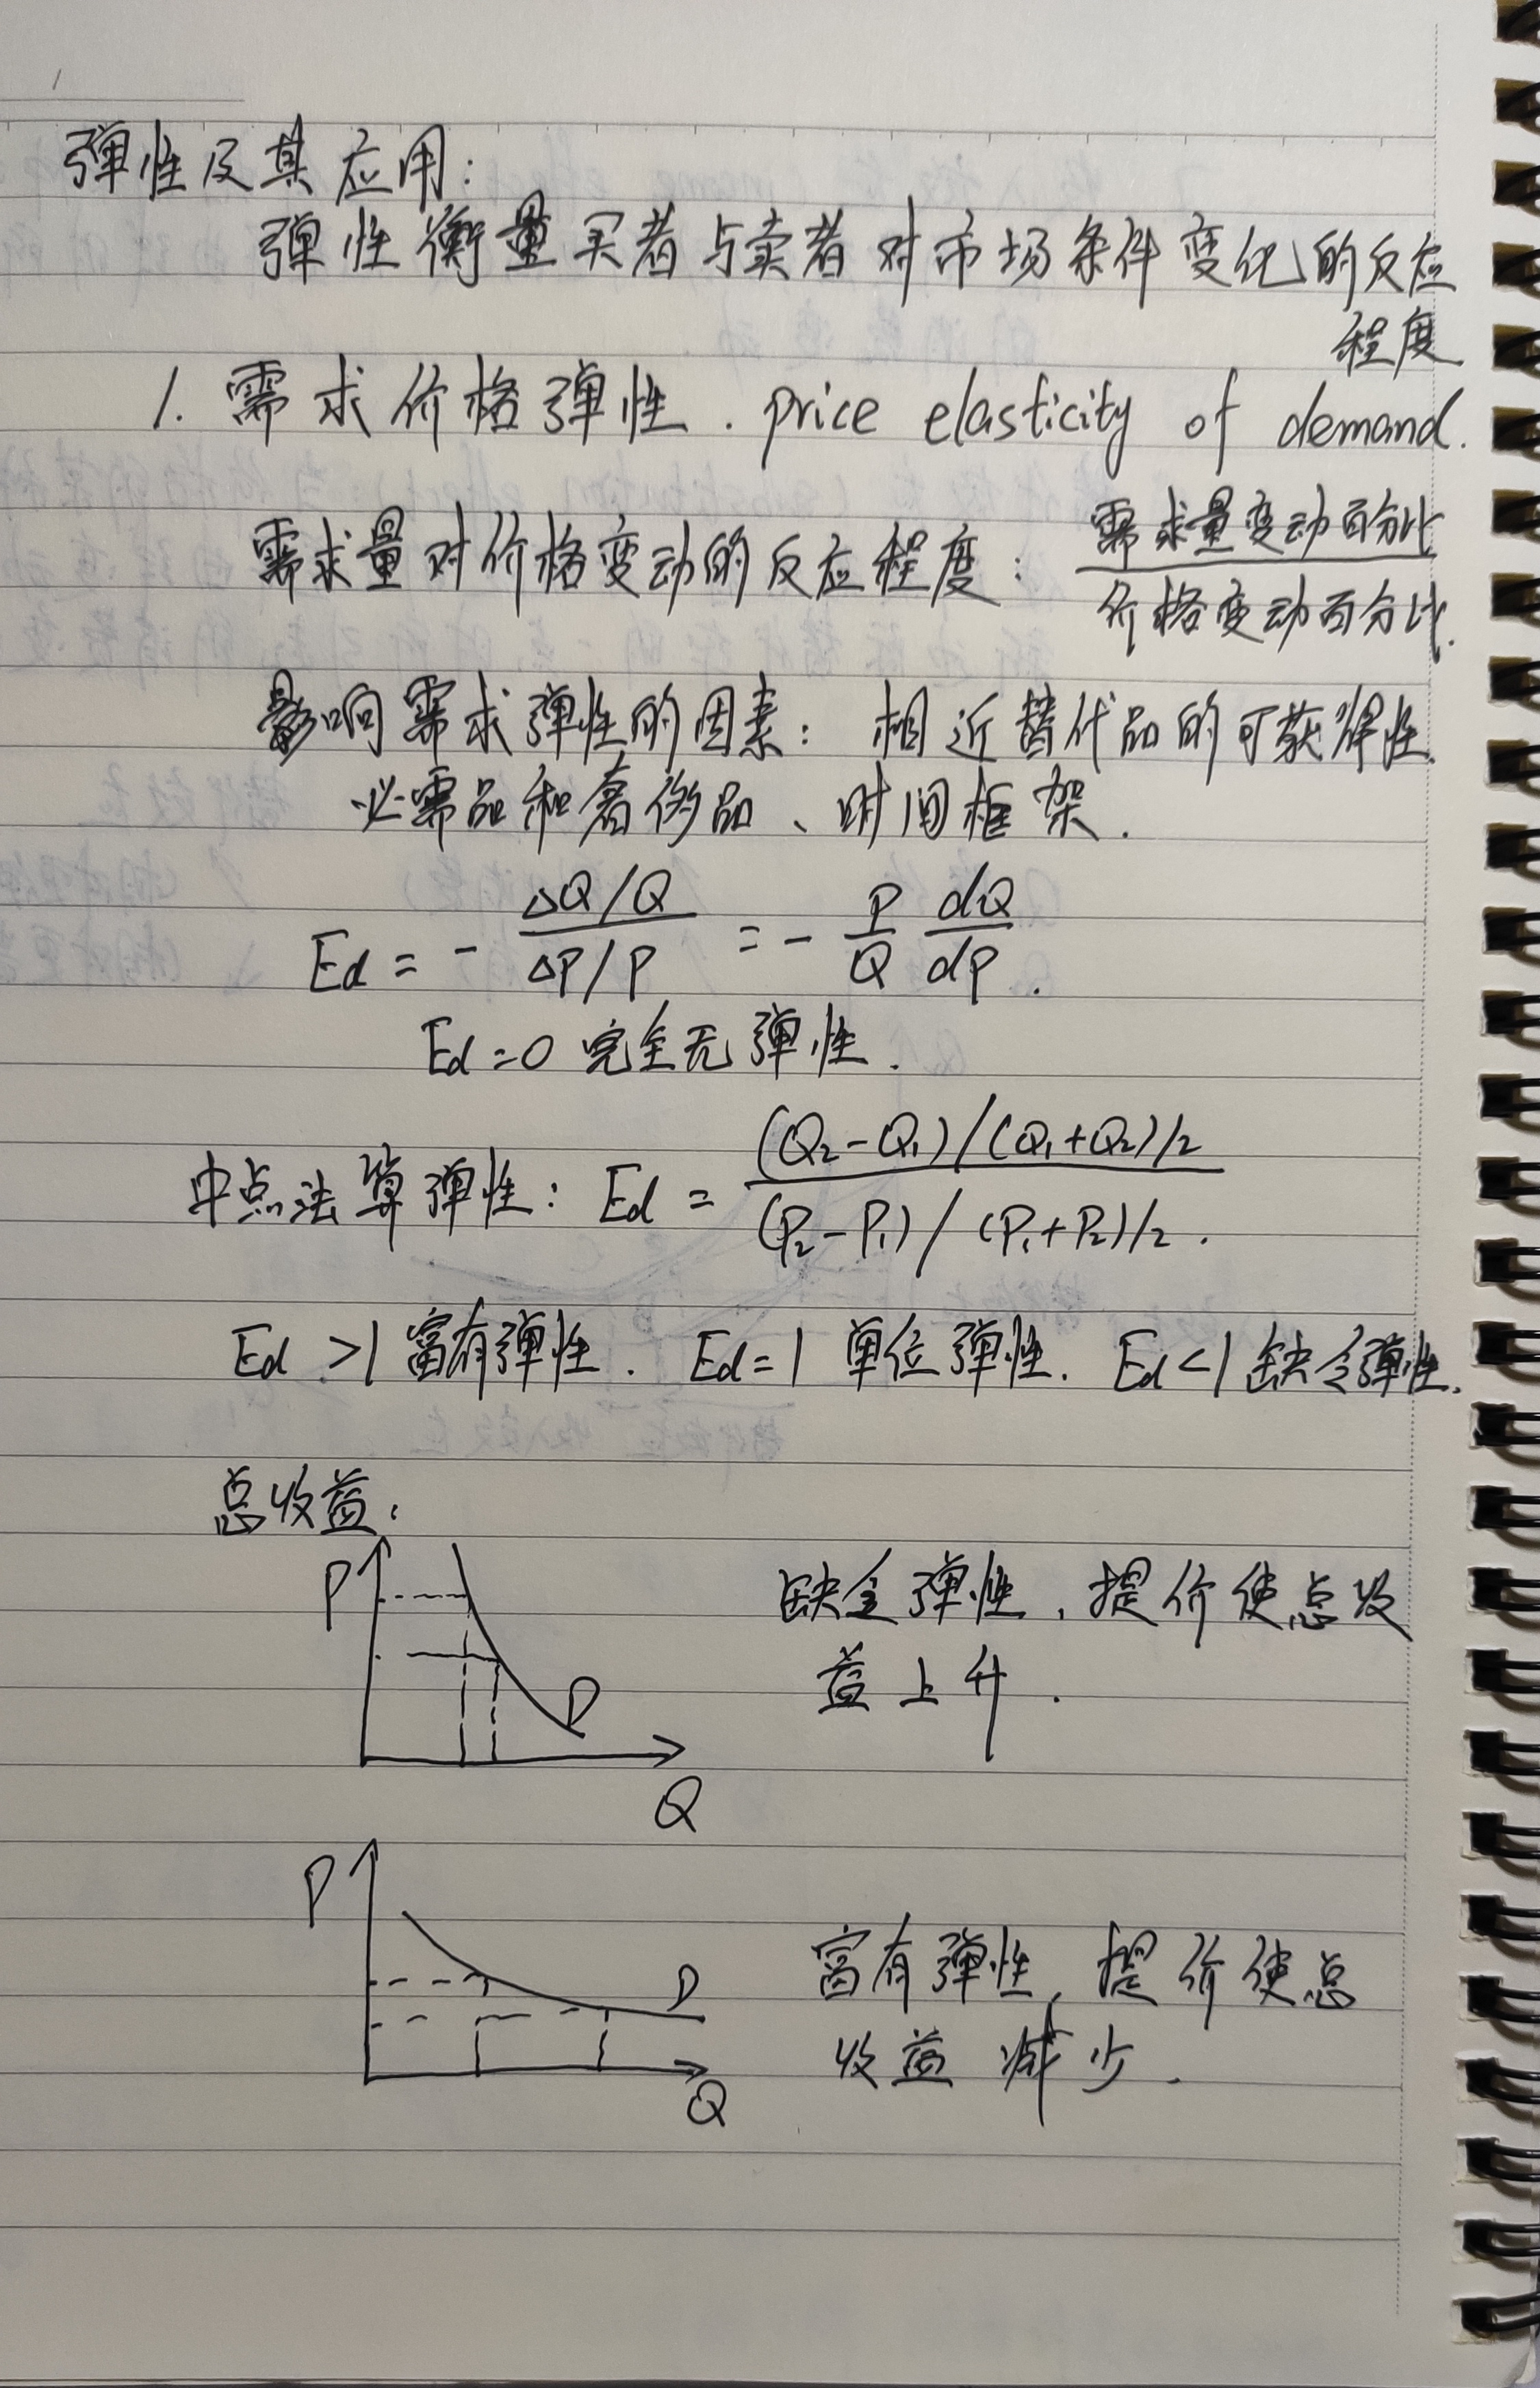 弹性及其应用:
弹性衡量买者与卖者对市场条件变化的反应
程度
1. 需求价格弹性. price elasticity of demand.
需求量对价格变动的反应程度: 需求量变动百分比
价格变动百分比.
影响需求弹性的因素: 相近替代品的可获得性
必需品和奢侈品、时间框架.
Ed = - ΔQ/Q / ΔP/P = - P/Q dQ/dP.
Ed=0 完全无弹性.
中点法算弹性: Ed = (Q₂-Q₁)/(Q₁+Q₂)/2
(P₂-P₁)/(P₁+P₂)/2.
Ed >1 富有弹性. Ed=1 单位弹性. Ed<1 缺乏弹性.
总收益:
P
缺乏弹性, 提价使总收
益上升.
D
Q
P
富有弹性, 提价使总
D
收益减少.
Q